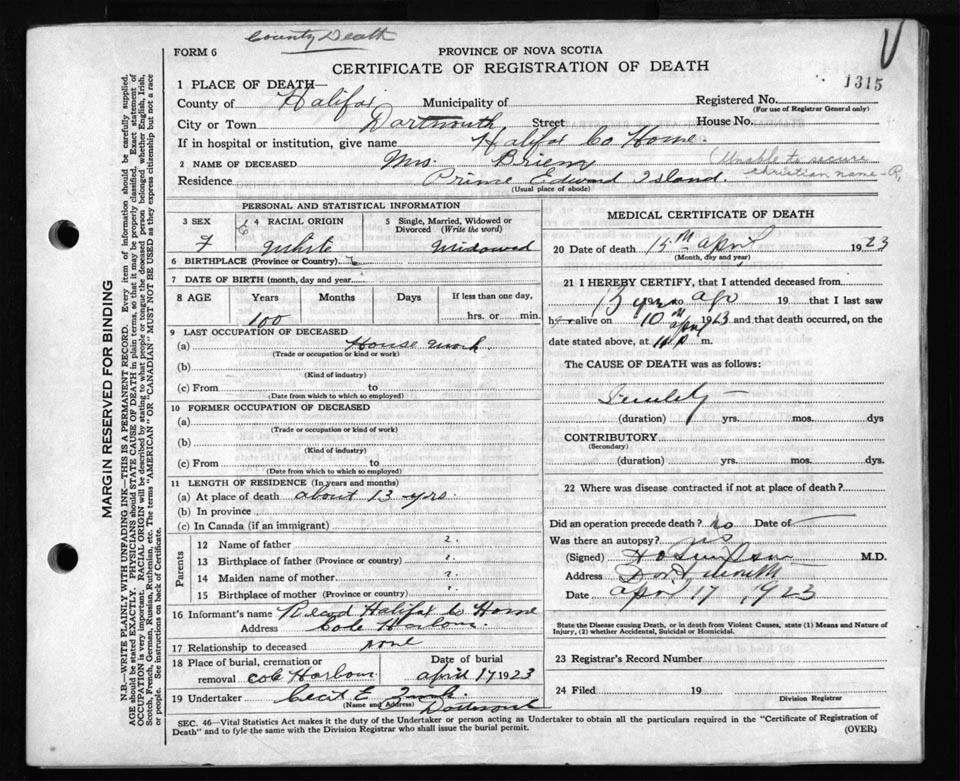 County Death
FORM 6
PROVINCE OF NOVA SCOTIA
CERTIFICATE OF REGISTRATION OF DEATH
1315
1 PLACE OF DEATH—
County of Halifax Municipality of Registered No.
(For use of Registrar General only)
City or Town Dartmouth Street House No.
If in hospital or institution, give name Halifax Co Home.
2 NAME OF DECEASED Mrs. (Unable to secure
christian name - R)
Residence Prince Edward Island.
(Usual place of abode)
MARGIN RESERVED FOR BINDING
N.B.—WRITE PLAINLY WITH UNFADING INK—THIS IS A PERMANENT RECORD. Every item of information should be carefully supplied.
AGE should be stated EXACTLY. PHYSICIANS should STATE CAUSE OF DEATH in plain terms, so that it may be properly classified. Exact statement of
OCCUPATION is very important. RACIAL ORIGIN will be described by stating to what people or tongue the deceased person belonged whether English, Irish,
Scotch, French, German, Russian, Ruthenian, etc. The terms "AMERICAN" or "CANADIAN" MUST NOT BE USED as they express citizenship but not a race
or people. See instructions on back of Certificate.
PERSONAL AND STATISTICAL INFORMATION
3 SEX 4 RACIAL ORIGIN 5 Single, Married, Widowed or
Divorced (Write the word)
F White Widowed
6 BIRTHPLACE (Province or Country)
7 DATE OF BIRTH (month, day and year
8 AGE Years Months Days If less than one day,
100 hrs. or min.
9 LAST OCCUPATION OF DECEASED
(a) House work.
(Trade or occupation or kind or work)
(b)
(Kind of industry)
(c) From to
(Date from which to which so employed)
10 FORMER OCCUPATION OF DECEASED
(a)
(Trade or occupation or kind of work)
(b)
(Kind of industry)
(c) From to
(Date from which to which so employed)
11 LENGTH OF RESIDENCE (In years and months)
(a) At place of death about 13 yrs.
(b) In province
(c) In Canada (if an immigrant)
Parents
12 Name of father ?
13 Birthplace of father (Province or country) ?
14 Maiden name of mother ?
15 Birthplace of mother (Province or country) ?
16 Informant's name Record Halifax Co Home
Address Cole Harbour.
17 Relationship to deceased none
18 Place of burial, cremation or Date of burial
removal Cole Harbour April 17 1923
19 Undertaker Cecil E.
(Name and Address) Dartmouth
MEDICAL CERTIFICATE OF DEATH
20 Date of death 15th April 1923
(Month, day and year)
21 I HEREBY CERTIFY, that I attended deceased from
13 yrs ago 19 that I last saw
her alive on 10th April 1923 and that death occurred, on the
date stated above, at m.
The CAUSE OF DEATH was as follows:
Senility —
(duration) yrs. mos. dys
CONTRIBUTORY
(Secondary)
(duration) yrs. mos. dys.
22 Where was disease contracted if not at place of death?
Did an operation precede death? no Date of —
Was there an autopsy? no
(Signed) M.D.
Address Dartmouth
Date April 17, 1923
State the Disease causing Death, or in death from Violent Causes, state (1) Means and Nature of
Injury, (2) whether Accidental, Suicidal or Homicidal.
23 Registrar's Record Number
24 Filed 19
Division Registrar
SEC. 46—Vital Statistics Act makes it the duty of the Undertaker or person acting as Undertaker to obtain all the particulars required in the "Certificate of Registration of
Death" and to fyle the same with the Division Registrar who shall issue the burial permit. (OVER)